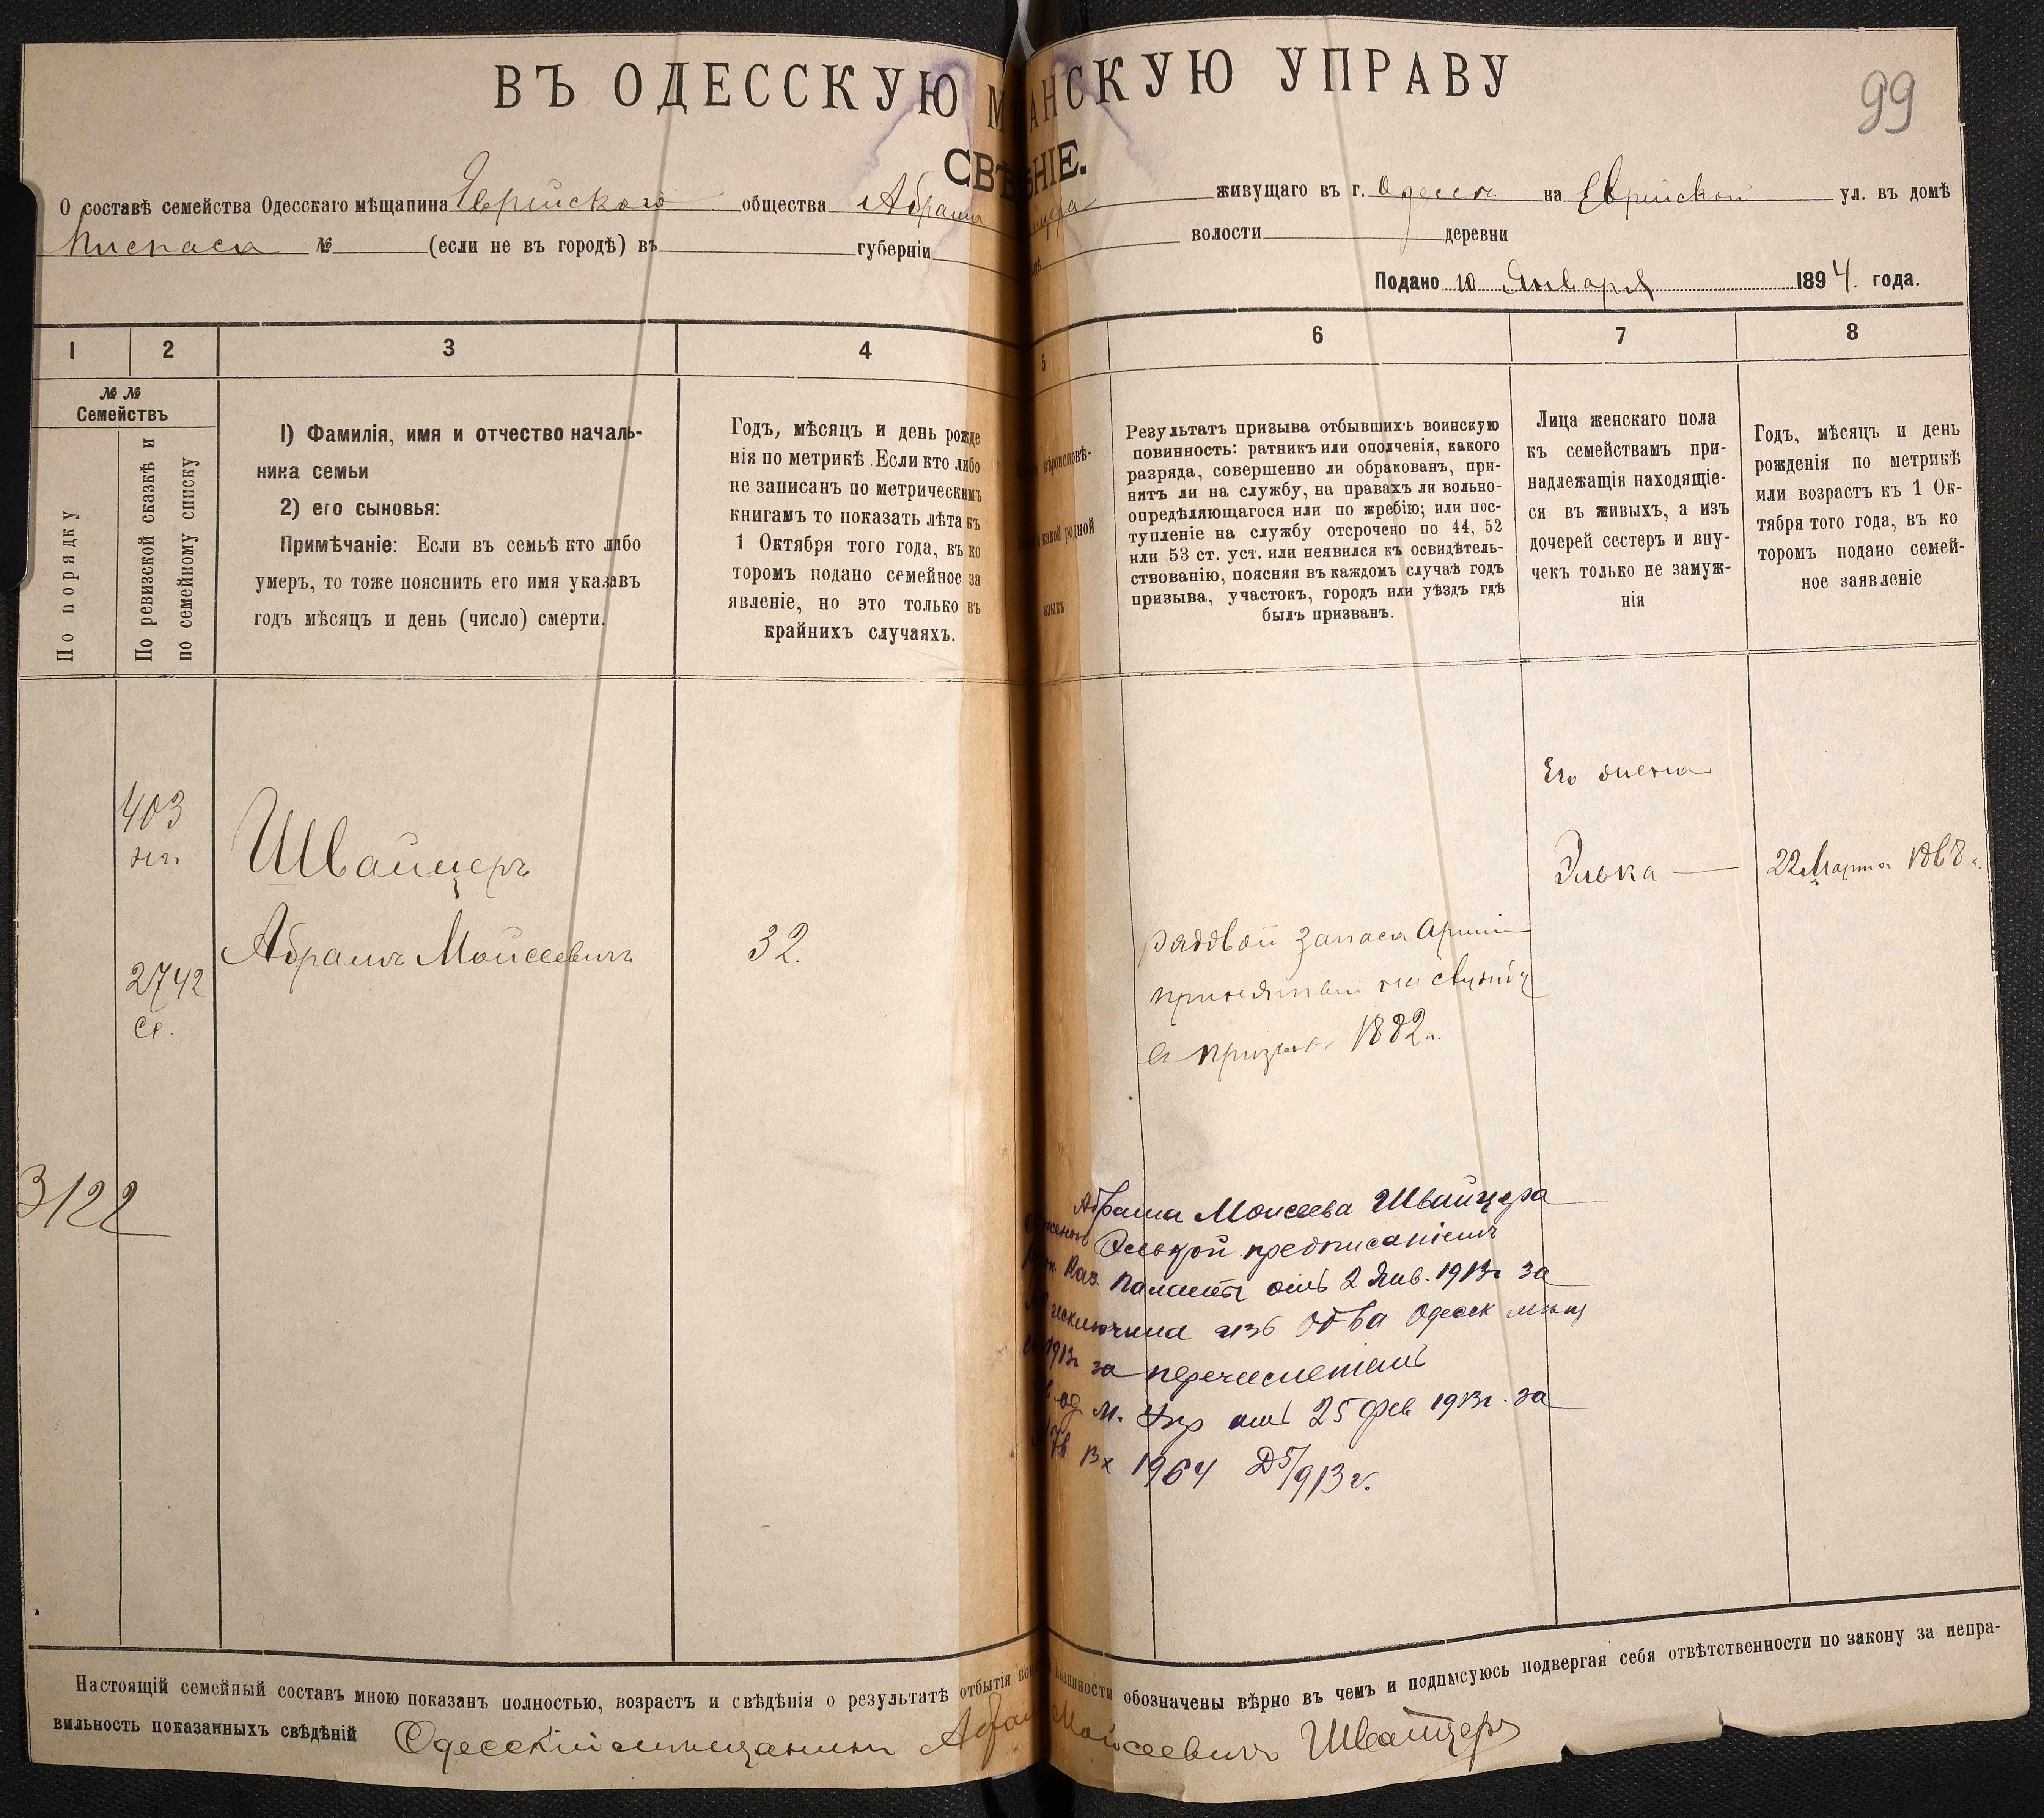 99
ВЪ ОДЕССКУЮ М АНСКУЮ УПРАВУ
СВѢ ѢНІЕ.
О составѣ семейства Одесскаго мѣщанина Еврейскаго общества Абрама йцера живущаго въ г. Одессѣ на Еврейской ул. въ домѣ
№ (если не въ городѣ) въ губерніи волости деревни
Подано 10 Января 1894. года.
1 2 3 4 5 6 7 8
№ №
Семействъ
По порядку
По ревизской сказкѣ и
по семейному списку
1) Фамилія, имя и отчество началь-
ника семьи
2) его сыновья:
Примѣчаніе: Если въ семьѣ кто либо
умеръ, то тоже пояснить его имя указавъ
годъ мѣсяцъ и день (число) смерти.
Годъ, мѣсяцъ и день рожде
нія по метрикѣ. Если кто либо
не записанъ по метрическимъ
книгамъ то показать лѣта къ
1 Октября того года, въ ко
торомъ подано семейное за
явленіе, но это только въ
крайнихъ случаяхъ.
вѣроисповѣ-
какой родной
языкъ
Результатъ призыва отбывшихъ воинскую
повинность: ратникъ или ополченія, какого
разряда, совершенно ли обракованъ, при-
нятъ ли на службу, на правахъ ли вольно-
опредѣляющагося или по жребію; или пос-
тупленіе на службу отсрочено по 44, 52
или 53 ст. уст. или неявился къ освидѣтель-
ствованію, поясняя въ каждомъ случаѣ годъ
призыва, участокъ, городъ или уѣздъ гдѣ
былъ призванъ.
Лица женскаго пола
къ семействамъ при-
надлежащія находящіе-
ся въ живыхъ, а изъ
дочерей сестеръ и вну-
чекъ только не замуж-
нія
Годъ, мѣсяцъ и день
рожденія по метрикѣ
или возрастъ къ 1 Ок-
тября того года, въ ко
торомъ подано семей-
ное заявленіе
Его жена
403
Швайцеръ
Элька — 22 Марта 1868 г.
Абрамъ Мойсеевичъ 32.
2742
рядовой запаса Арміи
принятый на службу
въ призывъ 1882 г.
3122
Абрама Моисеева Швайцера
женою Элькой предписаніемъ
Каз. Палаты отъ 2 Янв. 1913г за
исключила изъ Об-ва Одесск мѣщ
1913г за перечисленіемъ
од. м. Упр отъ 25 Фев 1913г. за
Вх 1964 Д5/913 г.
Настоящій семейный составъ мною показанъ полностью, возрастъ и свѣдѣнія о результатѣ отбытія во винности обозначены вѣрно въ чемъ и подписуюсь подвергая себя отвѣтственности по закону за непра-
вильность показанныхъ свѣдѣній Одесскій мѣщанинъ Абрамъ Мойсеевичъ Швайцеръ